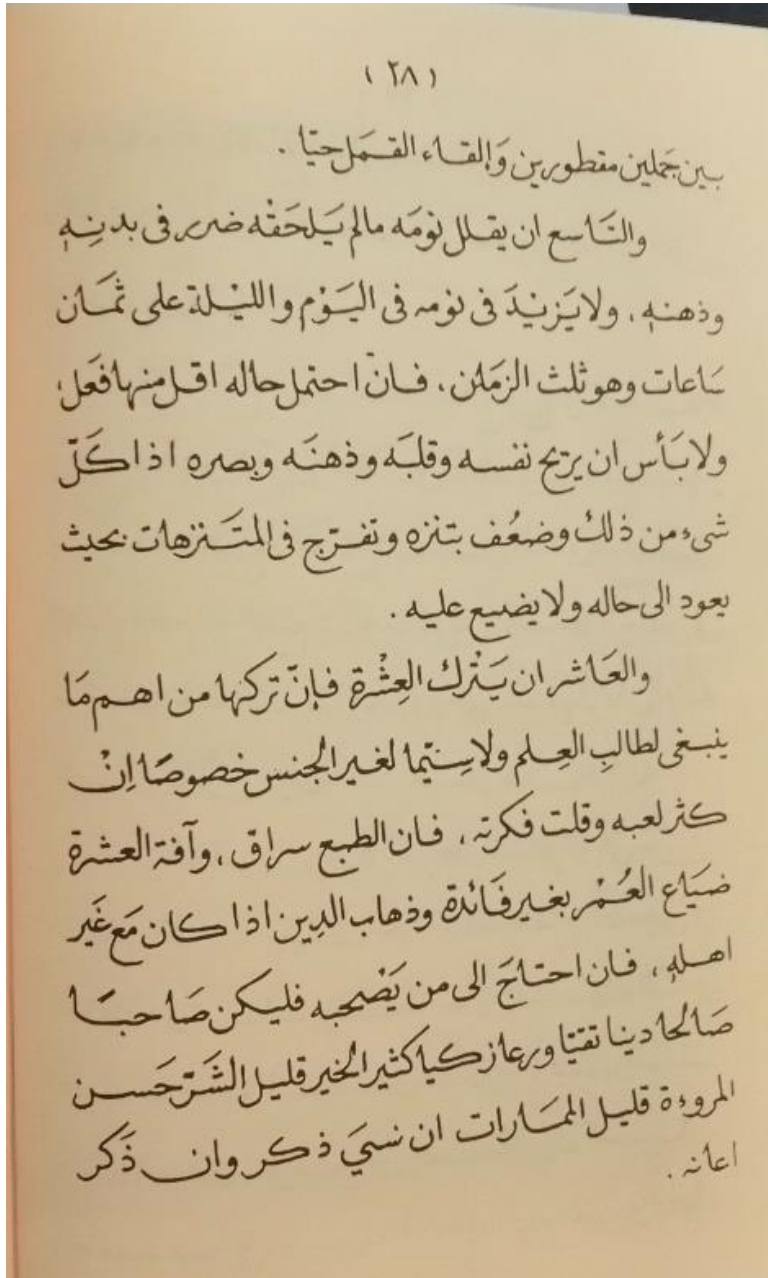 (٢٨)
بين جَملين مقطورين وَإلقاء القمَل حيّا .
والتَاسع ان يقلل نومَه مالم يَلحَقْه ضرر فى بدنِهِ
وذهنهِ . ولايَزيْدَ فى نومه فى اليَوْم والليْلة على ثمَان
سَاعات وهو ثلث الزمَان . فانْ احتمل حاله اقل منها فعَل ،
ولابَأس ان يريح نفسه وقلبَه وذهنَه وبصره اذا كَلّ
شىء من ذلك وضعُف بتنزه وتفرّج فى المتَنزهات بحيث
يعود الى حاله ولا يضيع عليه .
والعَاشر ان يَتْرك العِشْرة فإنّ تركها من اهم مَا
ينبغى لطالبِ العِلم ولاسِيّما لغير الجنس خصوصًا اِنْ
كثر لعبه وقلت فكرته . فان الطبع سراق . وآفة العشرة
ضيَاع العُمْر بغير فَائدة وذهاب الدِين اذا كان مَع غَير
اهلهِ . فان احتاجَ الى من يَصْحبه فليكن صَاحبًا
صَالحا دينا تقيّا ورعا زكيا كثير الخير قليل الشَرّ حَسن
المروءة قليل الممَارات ان نسيَ ذكر وان ذَكر
اعانه .